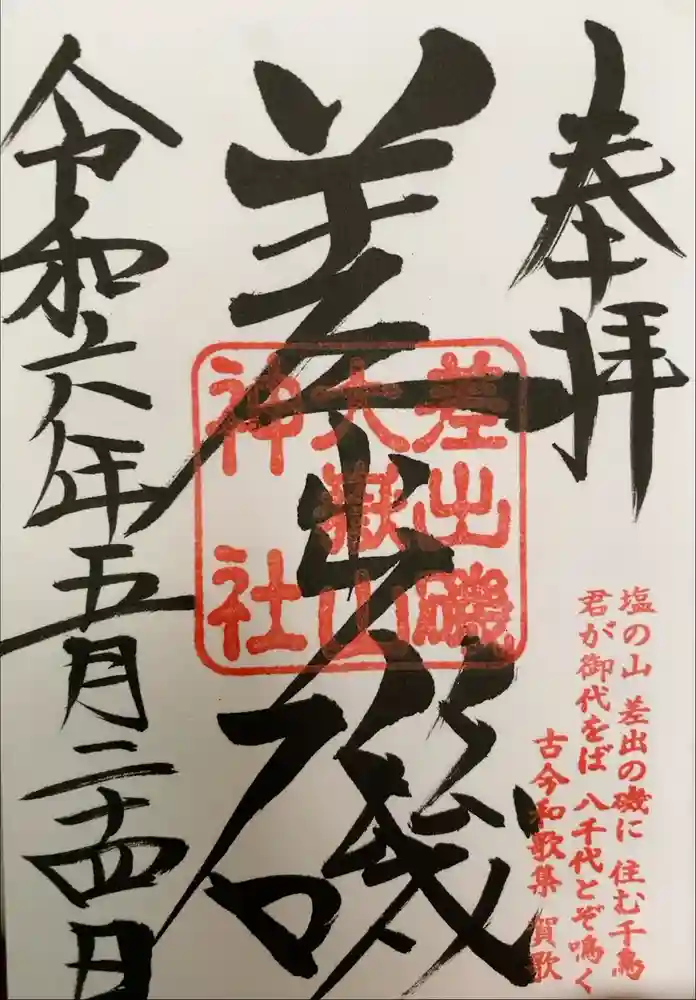 奉拝
塩の山 差出の磯に 住む千鳥
君が御代をば 八千代とぞ鳴く
古今和歌集 賀歌
差出磯
差出磯
大嶽山
神社
令和六年五月二十四日